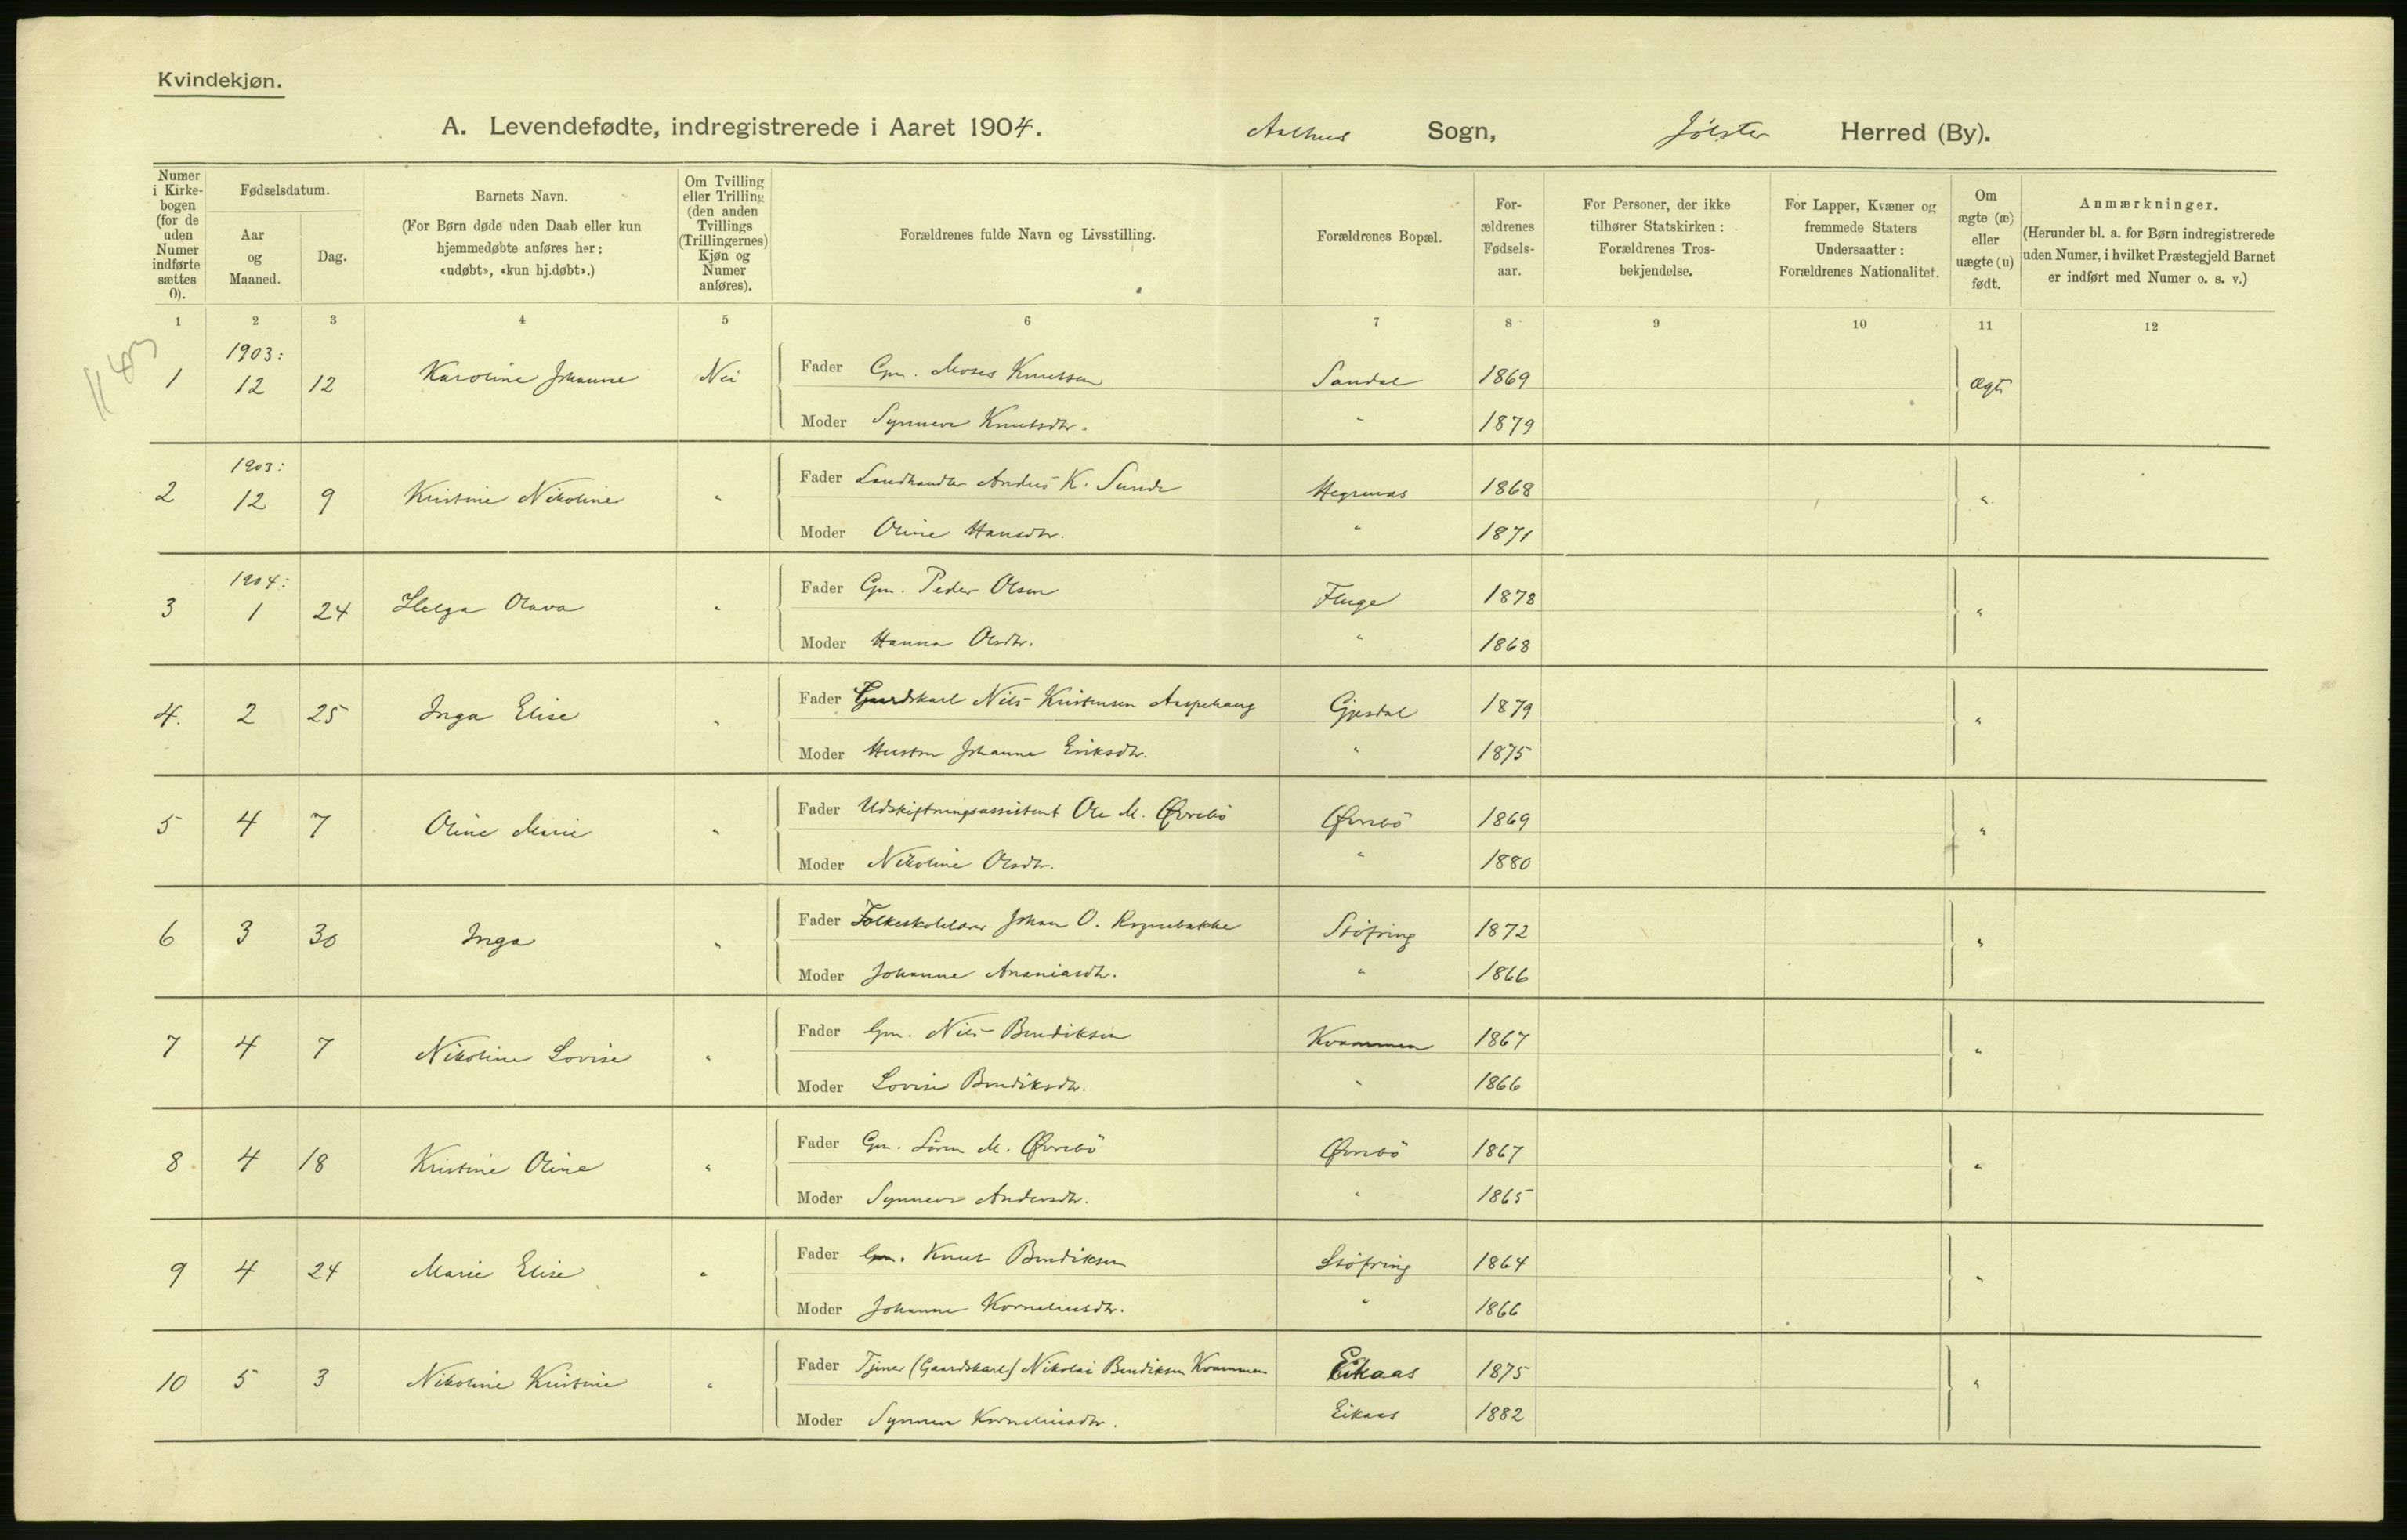 Kvindekjøn.
A. Levendefødte, indregistrerede i Aaret 1904. Aalhus Sogn, Jölster Herred (By).
Numer i Kirkebogen (for de uden Numer indførte sættes 0).
Fødselsdatum.
Aar og Maaned.
Dag.
Barnets Navn.
(For Børn døde uden Daab eller kun hjemmedøbte anføres her: «udøbt», «kun hj.døbt».)
Om Tvilling eller Trilling (den anden Tvillings (Trillingernes) Kjøn og Numer anføres).
Forældrenes fulde Navn og Livsstilling.
Forældrenes Bopæl.
Forældrenes Fødselsaar.
For Personer, der ikke tilhører Statskirken: Forældrenes Trosbekjendelse.
For Lapper, Kvæner og fremmede Staters Undersaatter: Forældrenes Nationalitet.
Om ægte (æ) eller uægte (u) født.
Anmærkninger.
(Herunder bl. a. for Børn indregistrerede uden Numer, i hvilket Præstegjeld Barnet er indført med Numer o. s. v.)
1 2 3 4 5 6 7 8 9 10 11 12
1903:
1 12 12 Karoline Johanne Nei Fader Gm. Moses Knutsen Sandal 1869 Ægte
Moder Synneve Knutsdtr. " 1879
1903:
2 12 9 Kristine Nikoline " Fader Landhandler Anders K. Sunde Hegrenæs 1868 "
Moder Oline Hansdtr. " 1871
1904:
3 1 24 Helga Olava " Fader Gm. Peder Olsen Fluge 1878 "
Moder Hanna Olsdtr. " 1868
4. 2 25 Inga Elise " Fader Gaardskarl Nils Kristensen Aspehaug Gjesdal 1879 "
Moder Hustru Johanne Eriksdtr. " 1875
5 4 7 Oline Marie " Fader Udskiftningsassistent Ole M. Øvrebö Øvrebö 1869 "
Moder Nikoline Olsdtr. " 1880
6 3 30 Inga " Fader Folkeskolelærer Johan O. Rognebakke Stöfring 1872 "
Moder Johanne Ananiasdtr. " 1866
7 4 7 Nikoline Lovise " Fader Gm. Nils Bendiksen Kvammen 1867 "
Moder Lovise Bendiksdtr. " 1866
8 4 18 Kristine Oline " Fader Gm. Sören M. Øvrebö Øvrebö 1867 "
Moder Synneve Andersdtr. " 1865
9 4 24 Marie Elise " Fader Gm. Knut Bendiksen Stöfring 1864 "
Moder Johanne Korneliusdtr. " 1866
10 5 3 Nikoline Kristine " Fader Tjener (Gaardskarl) Nikolai Bendiksen Kvammen Eikaas 1875 "
Moder Synneve Korneliusdtr. Eikaas 1882